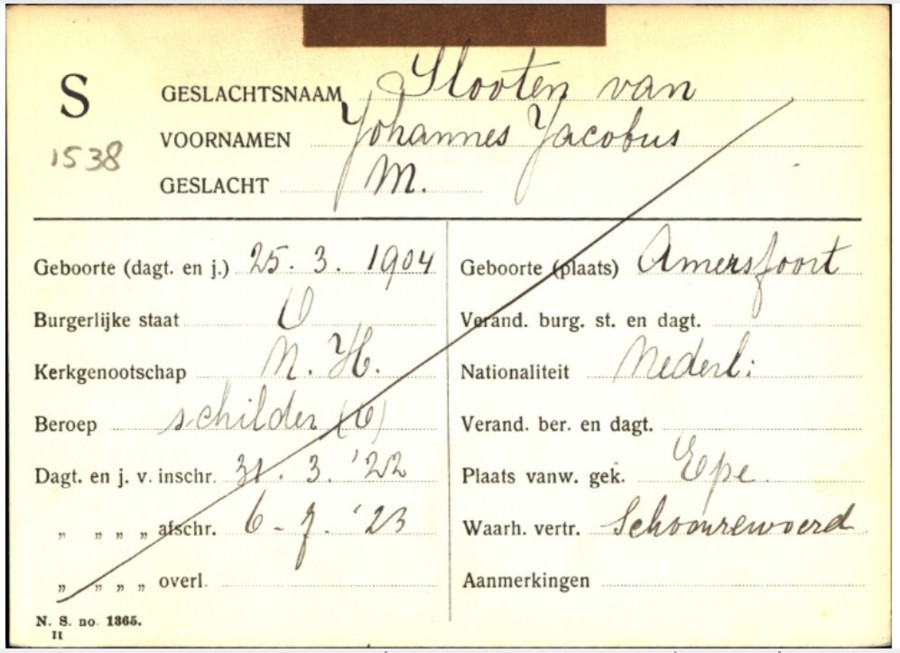 S GESLACHTSNAAM Slooten van
1538 VOORNAMEN Johannes Jacobus
GESLACHT M.
Geboorte (dagt. en j.) 25. 3. 1904 Geboorte (plaats) Amersfoort
Burgerlijke staat O Verand. burg. st. en dagt.
Kerkgenootschap N. H. Nationaliteit Nederl:
Beroep schilder (O) Verand. ber. en dagt.
Dagt. en j. v. inschr. 31. 3. '22 Plaats vanw. gek. Epe
„ „ „ „ afschr. 6 - 7. '23 Waarh. vertr. Schoonrewoerd
„ „ „ „ overl. Aanmerkingen
N. S. no. 1365.
II